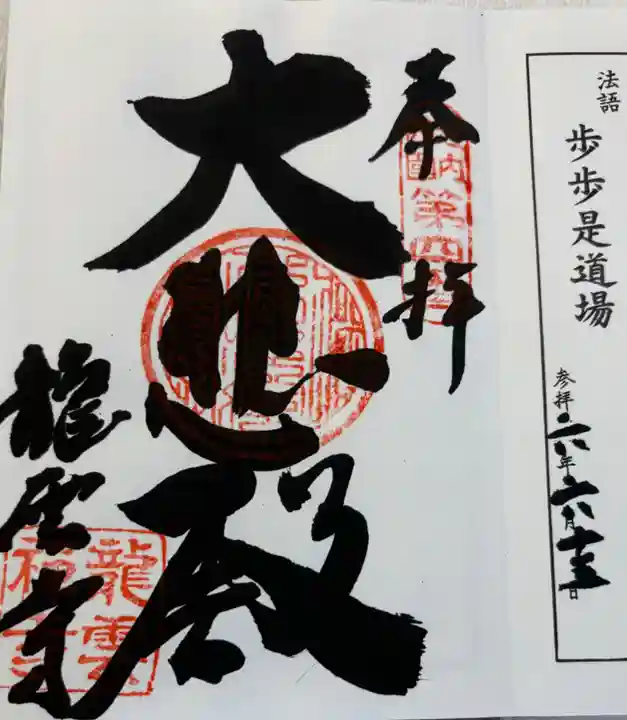 法語
歩歩是道場
参拝 六年六月十日
奉拝
内第四番
大悲殿
龍雲寺
龍雲
禅寺